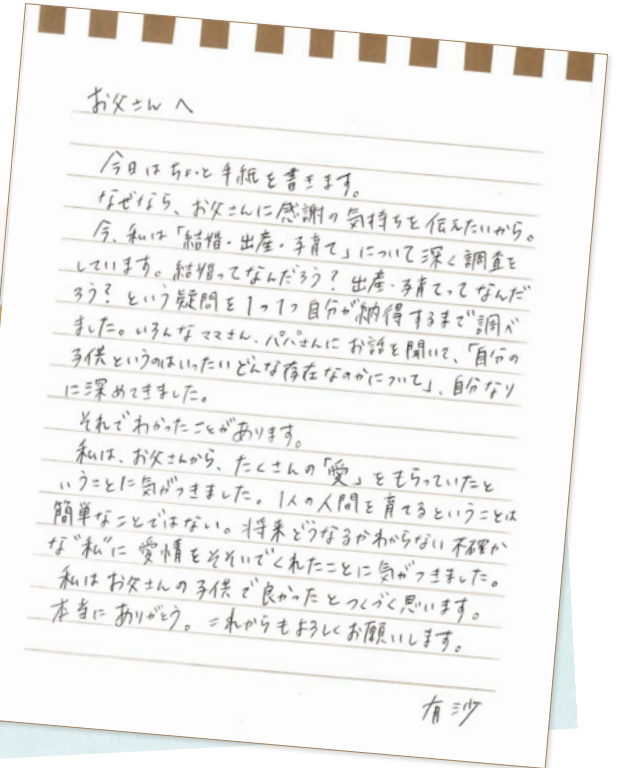 お父さんへ
今日はちょっと手紙を書きます。
なぜなら、お父さんに感謝の気持ちを伝えたいから。
今、私は「結婚・出産・子育て」について深く調査を
しています。結婚ってなんだろう？出産・子育てってなんだ
ろう？という疑問を1つ1つ自分が納得するまで調べ
ました。いろんなママさん、パパさんにお話を聞いて、「自分の
子供というのはいったいどんな存在なのかについて」、自分なり
に深めてきました。
それでわかったことがあります。
私は、お父さんから、たくさんの「愛」をもらっていたと
いうことに気がつきました。1人の人間を育てるということは
簡単なことではない。将来どうなるかわからない不確か
な"私"に愛情をそそいでくれたことに気がつきました。
私はお父さんの子供で良かったとつくづく思います。
本当にありがとう。これからもよろしくお願いします。
有沙